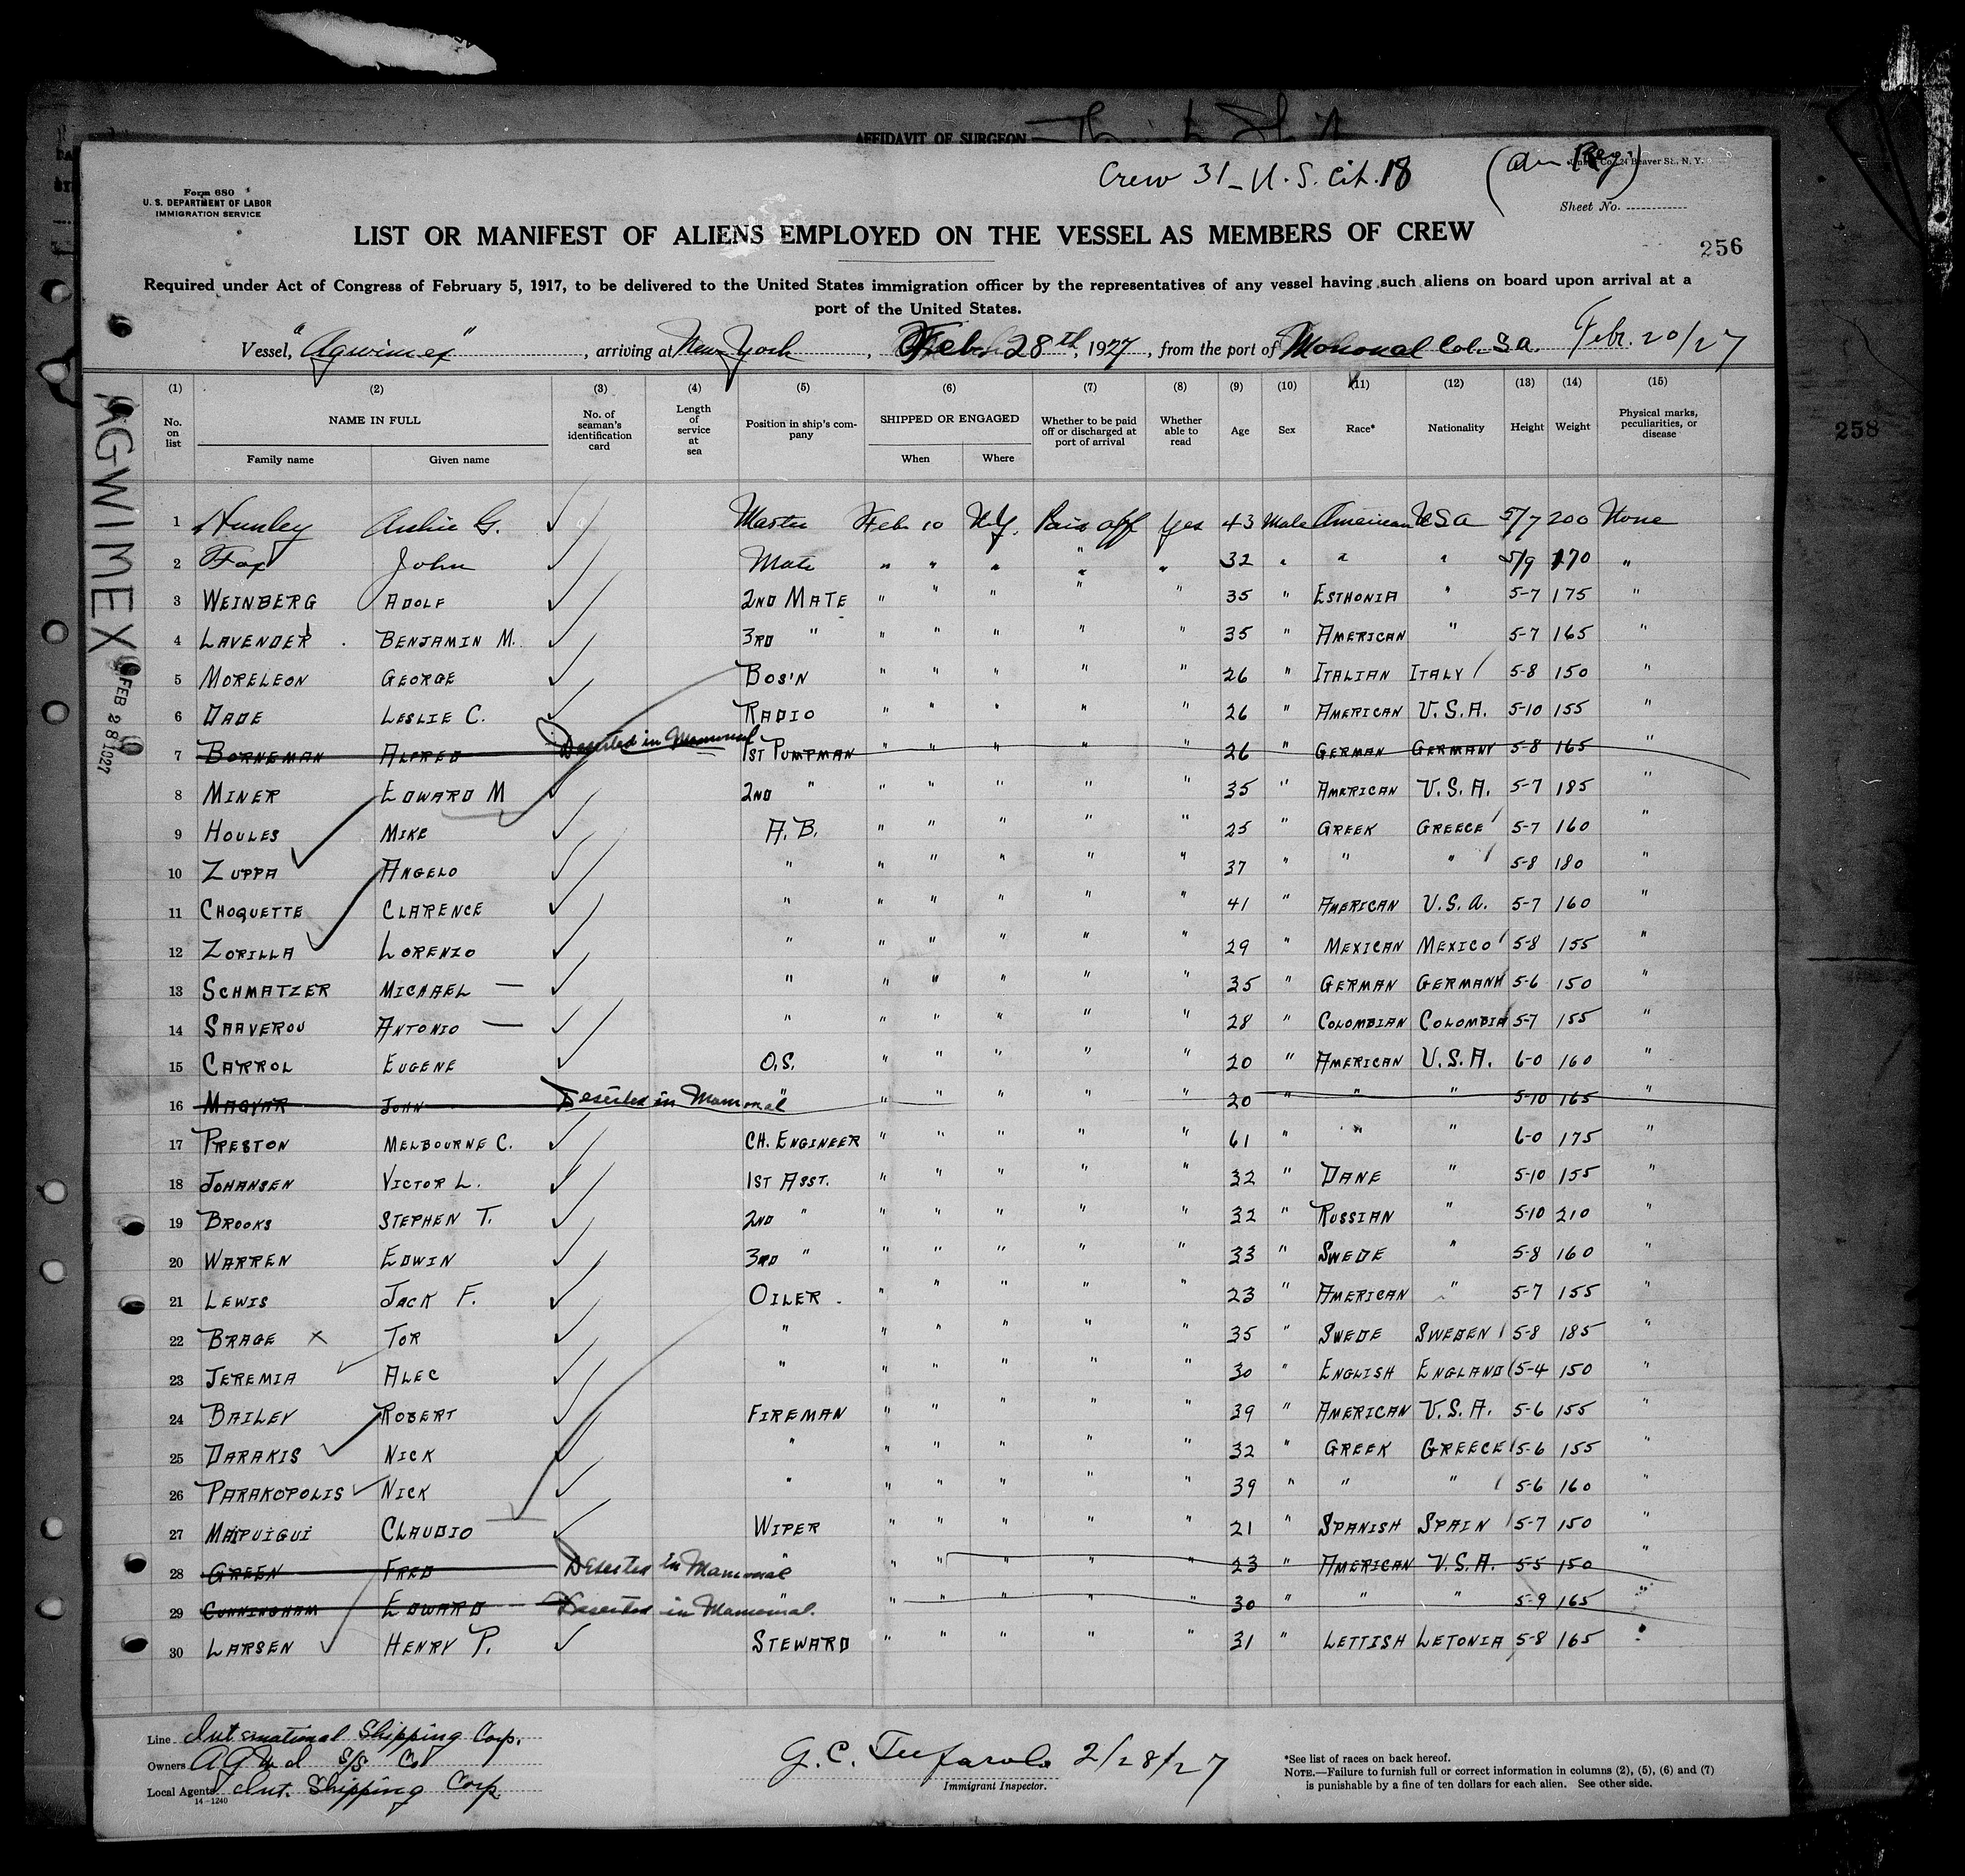 AFFIDAVIT OF SURGEON
Crew 31 - U.S. Cit. 18
24 Beaver St., N. Y.
Form 680
U. S. DEPARTMENT OF LABOR
IMMIGRATION SERVICE
Sheet No.
LIST OR MANIFEST OF ALIENS EMPLOYED ON THE VESSEL AS MEMBERS OF CREW
256
Required under Act of Congress of February 5, 1917, to be delivered to the United States immigration officer by the representatives of any vessel having such aliens on board upon arrival at a
port of the United States.
Vessel, "Agwimex", arriving at New York, Feb. 28th, 1927, from the port of Mamonal Col. S.a. Febr. 20/27
AGWIMEX
FEB 28 1927
258
(1) (2) (3) (4) (5) (6) (7) (8) (9) (10) (11) (12) (13) (14) (15)
No. on list NAME IN FULL Family name Given name No. of seaman's identification card Length of service at sea Position in ship's company SHIPPED OR ENGAGED When Where Whether to be paid off or discharged at port of arrival Whether able to read Age Sex Race* Nationality Height Weight Physical marks, peculiarities, or disease
1 Hunley Archie G. Master Feb 10 N.Y. Paid off Yes 43 Male American U S a 5/7 200 None
2 Fox John Mate " " " " " 32 " " " 5/9 170 "
3 WEINBERG ADOLF 2ND MATE " " " " " 35 " ESTHONIA " 5-7 175 "
4 LAVENDER BENJAMIN M. 3RD " " " " " " 35 " AMERICAN " 5-7 165 "
5 MORELEON GEORGE BOS'N " " " " " 26 " ITALIAN ITALY 5-8 150 "
6 DADE LESLIE C. RADIO " " " " " 26 " AMERICAN U.S.A. 5-10 155 "
7 BORNEMAN ALFRED Deserted in Mamonal 1ST PUMPMAN " " " " " 26 " GERMAN GERMANY 5-8 165 "
8 MINER EDWARD M 2ND " " " " " " 35 " AMERICAN U.S.A. 5-7 185 "
9 HOULES MIKE A.B. " " " " " 25 " GREEK GREECE 5-7 160 "
10 ZUPPA ANGELO " " " " " " 37 " " " 5-8 180 "
11 CHOQUETTE CLARENCE " " " " " " 41 " AMERICAN U.S.A. 5-7 160 "
12 ZORILLA LORENZO " " " " " " 29 " MEXICAN MEXICO 5-8 155 "
13 SCHMATZER MICHAEL — " " " " " " 35 " GERMAN GERMANY 5-6 150 "
14 SAAVEROU ANTONIO — " " " " " " 28 " COLOMBIAN COLOMBIA 5-7 155 "
15 CARROL EUGENE O.S. " " " " " 20 " AMERICAN U.S.A. 6-0 160 "
16 MAGYAR JOHN Deserted in Mamonal " " " " " " 20 " " " 5-10 165 "
17 PRESTON MELBOURNE C. CH. ENGINEER " " " " " 61 " " " 6-0 175 "
18 JOHANSEN VICTOR L. 1ST ASST. " " " " " 32 " DANE " 5-10 155 "
19 BROOKS STEPHEN T. 2ND " " " " " " 32 " RUSSIAN " 5-10 210 "
20 WARREN EDWIN 3RD " " " " " " 33 " SWEDE " 5-8 160 "
21 LEWIS JACK F. OILER. " " " " " 23 " AMERICAN " 5-7 155 "
22 BRAGE X TOR " " " " " " 35 " SWEDE SWEDEN 5-8 185 "
23 JEREMIA ALEC " " " " " " 30 " ENGLISH ENGLAND 5-4 150 "
24 BAILEY ROBERT FIREMAN " " " " " 39 " AMERICAN U.S.A. 5-6 155 "
25 DARAKIS NICK " " " " " " 32 " GREEK GREECE 5-6 155 "
26 PARAKOPOLIS NICK " " " " " " 39 " " " 5-6 160 "
27 MAIPUIGUI CLAUDIO WIPER " " " " " 21 " SPANISH SPAIN 5-7 150 "
28 GREEN FRED Deserted in Mamonal " " " " " " 23 " AMERICAN U.S.A. 5-5 150 "
29 CUNNINGHAM EDWARD Deserted in Mamonal. " " " " " " 30 " " " 5-9 165
30 LARSEN HENRY P. STEWARD " " " " " 31 " LETTISH LETONIA 5-8 165 "
Line International Shipping Corp.
Owners A G W I S/S Co
Local Agents Int. Shipping Corp.
14-1240
G. C. Tufarolo 2/28/27
Immigrant Inspector.
*See list of races on back hereof.
NOTE.—Failure to furnish full or correct information in columns (2), (5), (6) and (7)
is punishable by a fine of ten dollars for each alien. See other side.